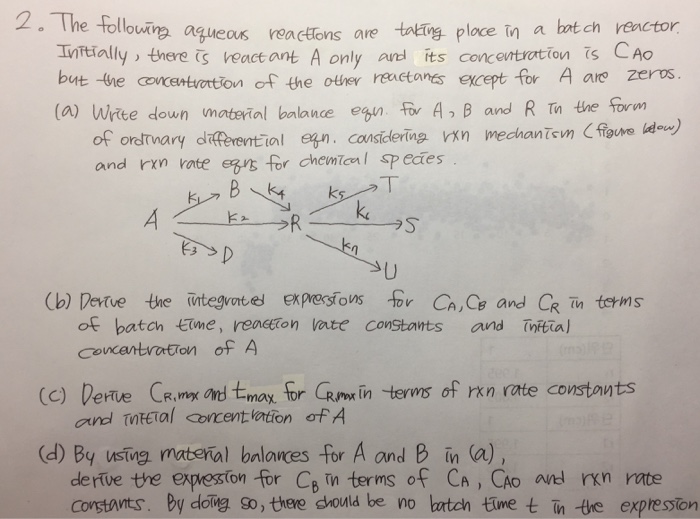 2. The following aqueous reactions are taking place in a batch reactor.
Initially, there is reactant A only and its concentration is CAO
but the concentration of the other reactants except for A are zeros.
(a) Write down material balance eqn. for A, B and R in the form
of ordinary differential eqn. considering rxn mechanism (figure below)
and rxn rate eqns for chemical species.
B k4 k5 T
k1
A k2 R k6 S
k3 D k7
U
(b) Derive the integrated expressions for CA, CB and CR in terms
of batch time, reaction rate constants and initial
concentration of A
(c) Derive CR,max and tmax for CR,max in terms of rxn rate constants
and initial concentration of A
(d) By using material balances for A and B in (a),
derive the expression for CB in terms of CA, CAO and rxn rate
constants. By doing so, there should be no batch time t in the expression